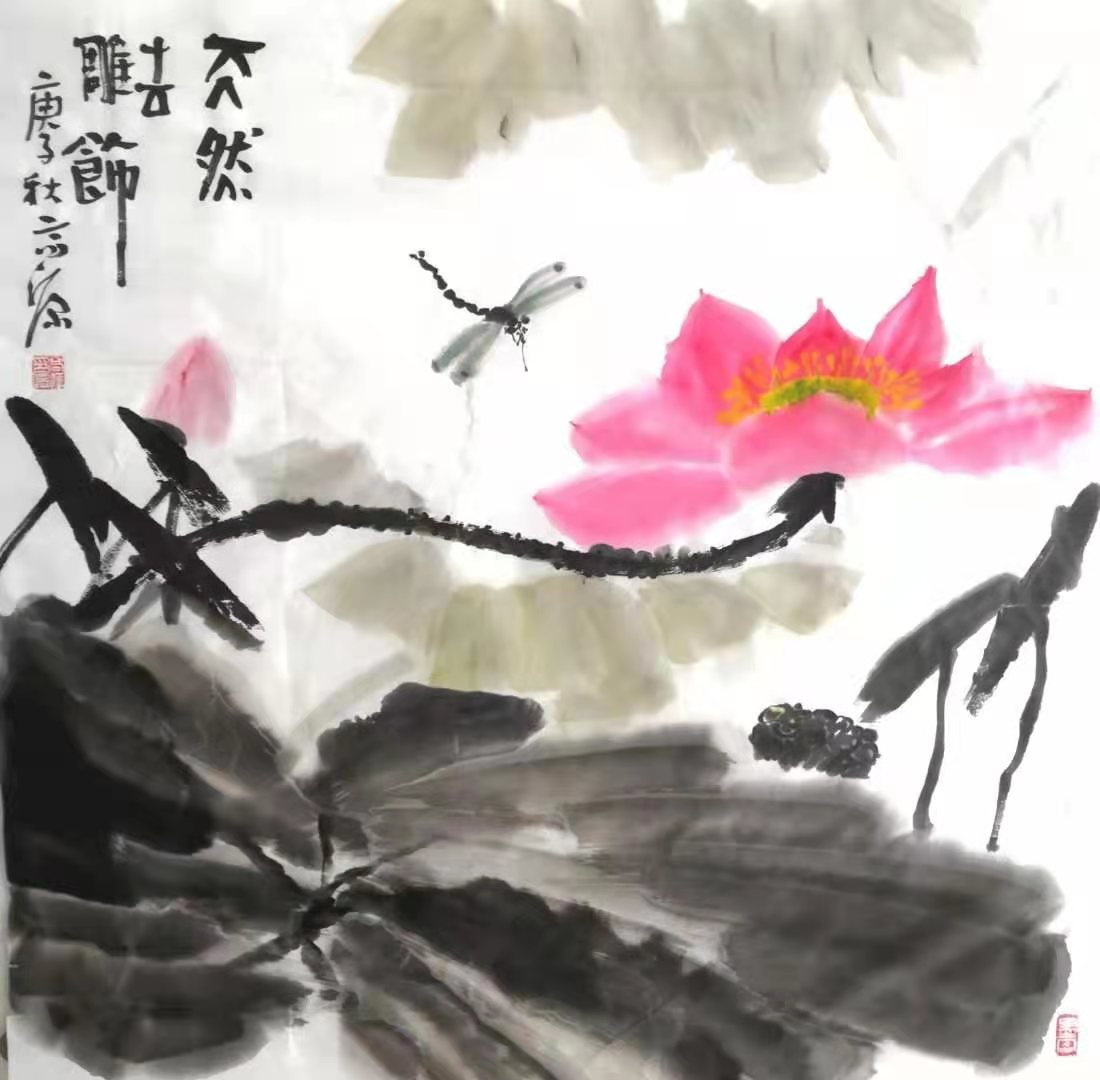 天然
去
雕飾
庚子秋